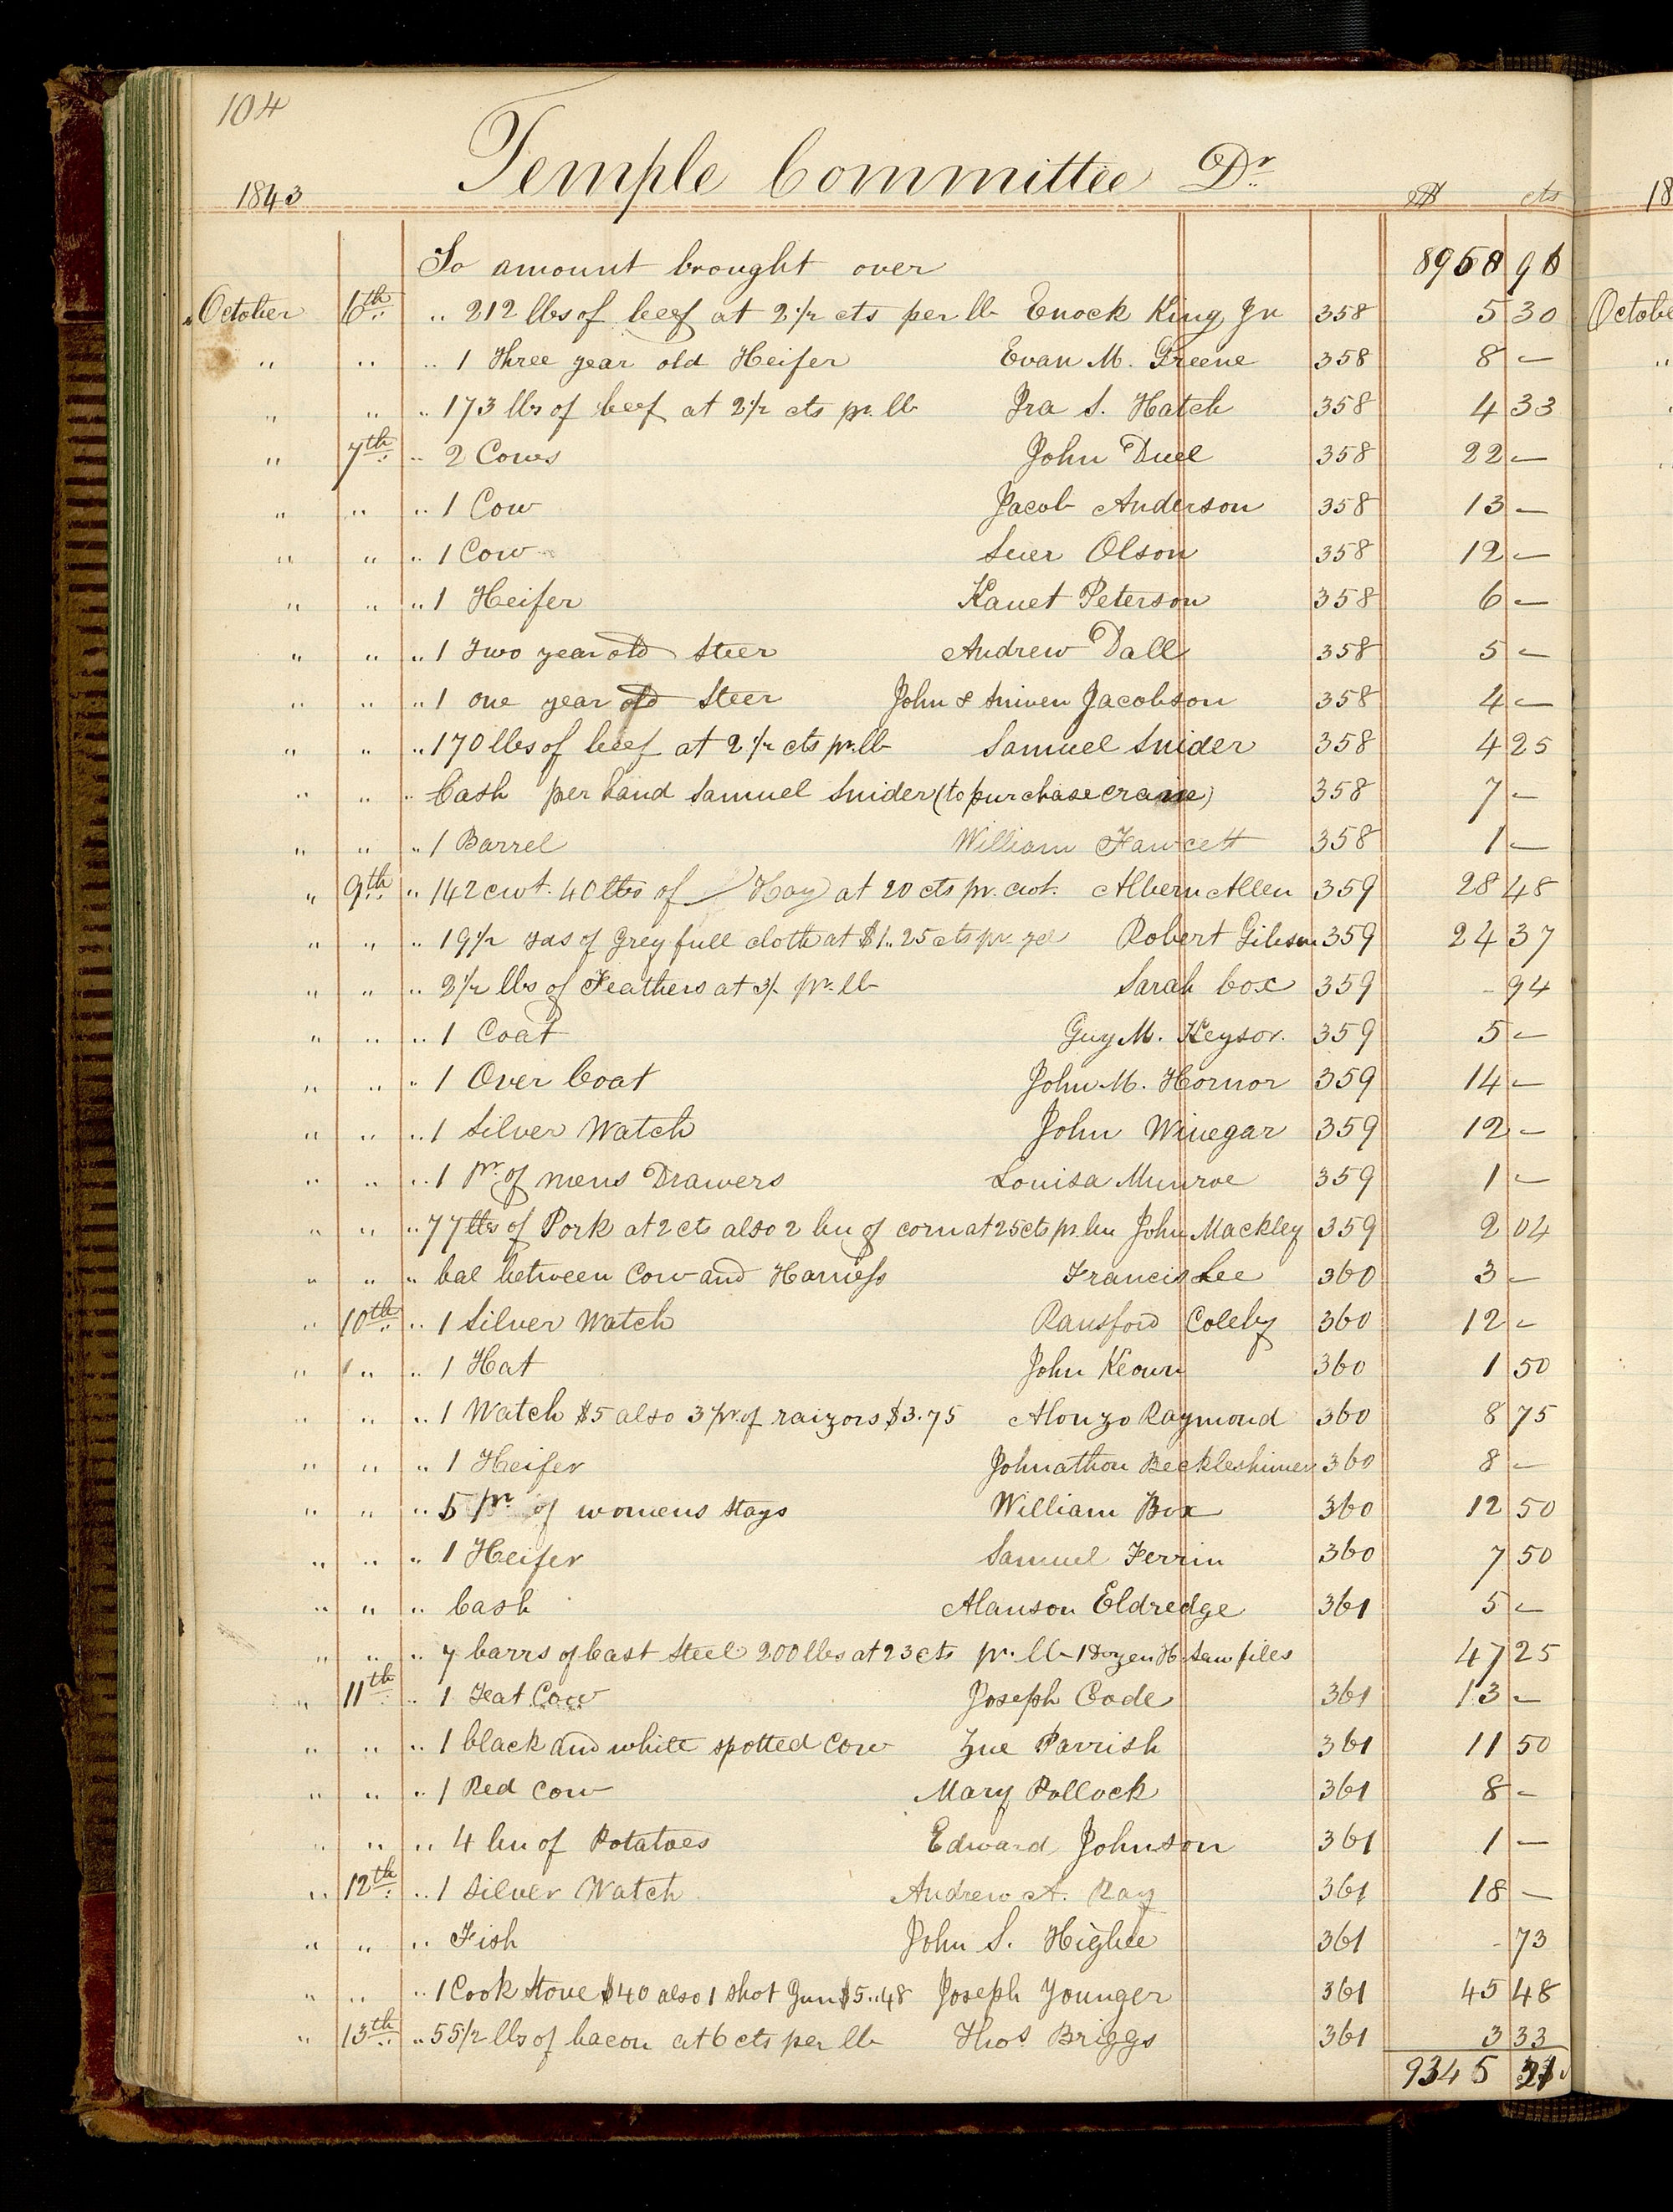 104
Temple Committee Dr
1843 $ cts 18
To amount brought over 8958 96
October 6th " 212 lbs of beef at 2 1/2 cts per lb Enock King Jn 358 5 30 Octobe
" " " 1 Three year old Heifer Evan M. Greene 358 8 —
" " " 173 lbs of beef at 2 1/2 cts pr. lb Ira S. Hatch 358 4 33
" 7th " 2 Cows John Duel 358 22 —
" " " 1 Cow Jacob Anderson 358 13 —
" " " 1 Cow Suer Olson 358 12 —
" " " 1 Heifer Kanet Peterson 358 6 —
" " " 1 two year old Steer Andrew Dall 358 5 —
" " " 1 one year old Steer John & Sniven Jacobson 358 4 —
" " " 170 lbs of beef at 2 1/2 cts pr. lb Samuel Snider 358 4 25
" " " Cash per hand Samuel Snider (to purchase crane) 358 7 —
" " " 1 Barrel William Fawcett 358 1 —
" 9th " 142 cwt. 40 lbs of Hay at 20 cts pr. cwt. Albern Allen 359 28 48
" " " 19 1/2 yds of Grey full cloth at $1..25 cts pr yd Robert Gibson 359 24 37
" " " 2 1/2 lbs of Feathers at 3/. pr. lb Sarah Cox 359 - 94
" " " 1 Coat Guy M. Keysor. 359 5 —
" " " 1 Over Coat John M. Hornor 359 14 —
" " " 1 Silver Watch John Winegar 359 12 —
" " " 1 pr. of mens Drawers Louisa Munroe 359 1 —
" " " 77 lbs of Pork at 2 cts also 2 bu of corn at 25 cts pr. bu John Mackley 359 2 04
" " " bal between Cow and Harness Francis Lee 360 3 —
" 10th " 1 Silver Watch Ransford Coleby 360 12 —
" " " 1 Hat John Keown 360 1 50
" " " 1 Watch $5 also 3 pr. of raizors $3.75 Alonzo Raymond 360 8 75
" " " 1 Heifer Johnathon Beckleshimer 360 8 —
" " " 5 pr of womens Stays William Box 360 12 50
" " " 1 Heifer Samuel Ferrin 360 7 50
" " " Cash Alanson Eldredge 361 5 —
" " " 7 barrs of Cast Steel 200 lbs at 23 cts pr. lb - 1 Dozen H. Saw files 47 25
" 11th " 1 Feat Cow Joseph Code 361 13 —
" " " 1 black and white spotted Cow Zue Parrish 361 11 50
" " " 1 Red Cow Mary Pollock 361 8 —
" " " 4 bu of Potatoes Edward Johnson 361 1 —
" 12th " 1 Silver Watch Andrew A. Ray 361 18 —
" " " Fish John S. Higbee 361 - 73
" " " 1 Cook Stove $40 also 1 Shot Gun $5..48 Joseph Younger 361 45 48
" 13th " 55 1/2 lbs of bacon at 6 cts per lb Thos Briggs 361 3 33
9345 21